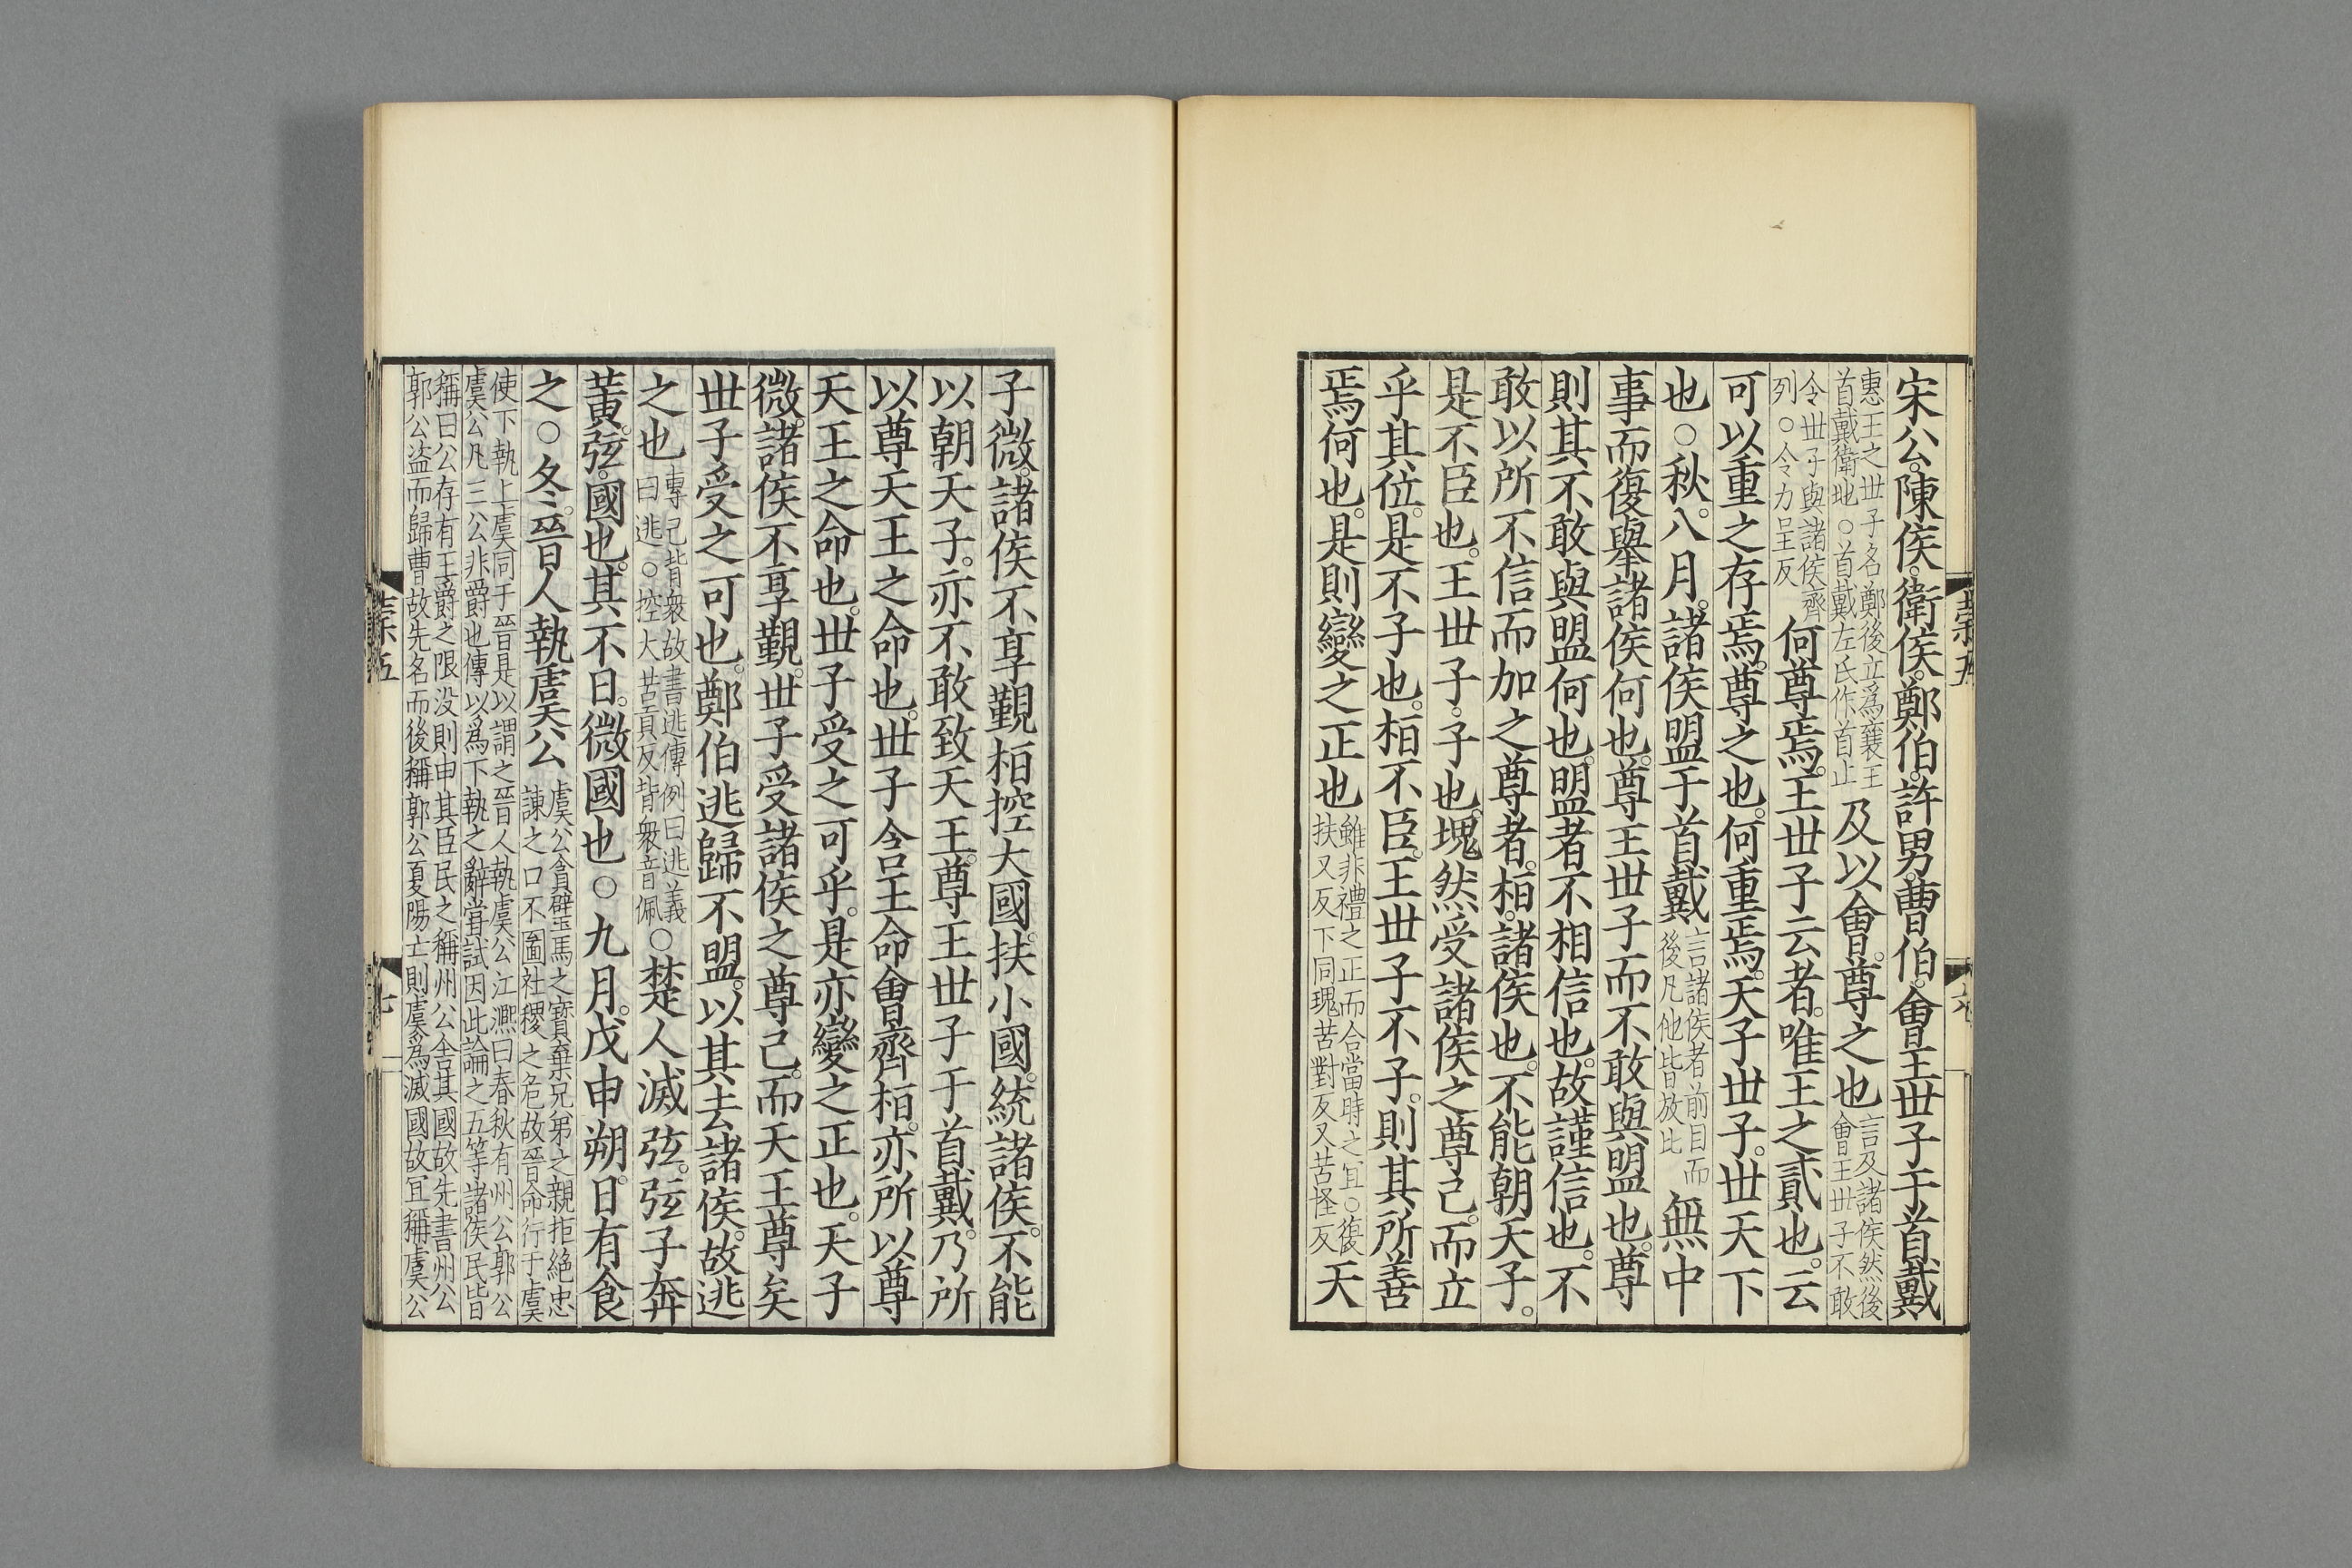 宋公。陳侯。衛侯。鄭伯。許男。曹伯。會王世子于首戴
惠王之世子名鄭後立爲襄王
首戴衛地○首戴左氏作首止
及以會。尊之也
言及諸侯然後
會王世子不敢
令世子與諸侯齊
列○令力呈反
何尊焉。王世子云者。唯王之貳也。云
可以重之存焉。尊之也。何重焉。天子世子。世天下
也○秋。八月。諸侯盟于首戴
言諸侯者前目而
後凡他皆放比
無中
事而復舉諸侯何也。尊王世子而不敢與盟也。尊
則其不敢與盟何也。盟者不相信也。故謹信也。不
敢以所不信而加之尊者。桓。諸侯也。不能朝天子。
是不臣也。王世子。子也。塊然受諸侯之尊己。而立
乎其位。是不子也。桓不臣。王世子不子。則其所善
焉何也。是則變之正也
雖非禮之正而合當時之宜○復
扶又反下同塊苦對反又苦怪反
天
子微。諸侯不享覲桓控大國。扶小國。統諸侯。不能
以朝天子。亦不敢致天王。尊王世子于首戴。乃所
以尊天王之命也。世子含王命會齊桓。亦所以尊
天王之命也。世子受之可乎。是亦變之正也。天子
微。諸侯不享覲。世子受諸侯之尊己。而天王尊矣
世子受之可也。鄭伯逃歸不盟。以其去諸侯。故逃
之也
專己背衆故書逃傳例曰逃義
曰逃○控大苦貢反背衆音佩
○楚人滅弦。弦子奔
黃。弦。國也。其不日。微國也○九月。戊申朔。日有食
之○冬。晉人執虞公
虞公貪璧馬之寶棄兄弟之親拒絕忠
諫之口不圖社稷之危故晉命行于虞
使下執上虞同于晉是以謂之晉人執虞公江熙曰春秋有州公郭公
虞公凡三公非爵也傳以爲下執之辭嘗試因此論之五等諸侯民皆
稱曰公存有王爵之限没則申其臣民之稱州公舍其國故先書州公
郭公盜而歸曹故先名而後稱郭公夏陽亡則虞爲滅國故宜稱虞公